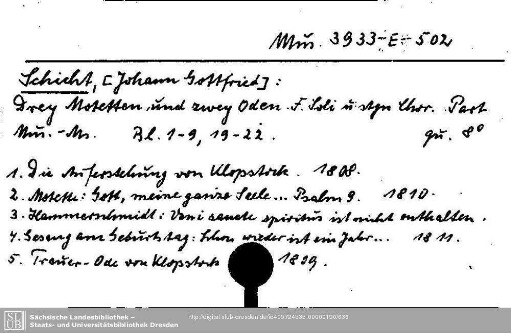 Mus. 3933-E-502
Schicht, [Johann Gottfried]:
Drey Motetten und zwey Oden. F. Soli u. 4stgn Chor. Part
Mus.-Ms. Bl. 1-9, 19-22. qu. 8°
1. Die Auferstehung von Klopstock. 1808.
2. Motette: Gott, meine ganze Seele... Psalm 9. 1810.
3. Hammerschmidt: Veni sancte spiritus ist nicht enthalten.
4. Gesang am Geburtstag: Schon wieder ist ein Jahr... 1811.
5. Trauer-Ode von Klopstock 1809.
SLUB
Sächsische Landesbibliothek –
Staats- und Universitätsbibliothek Dresden